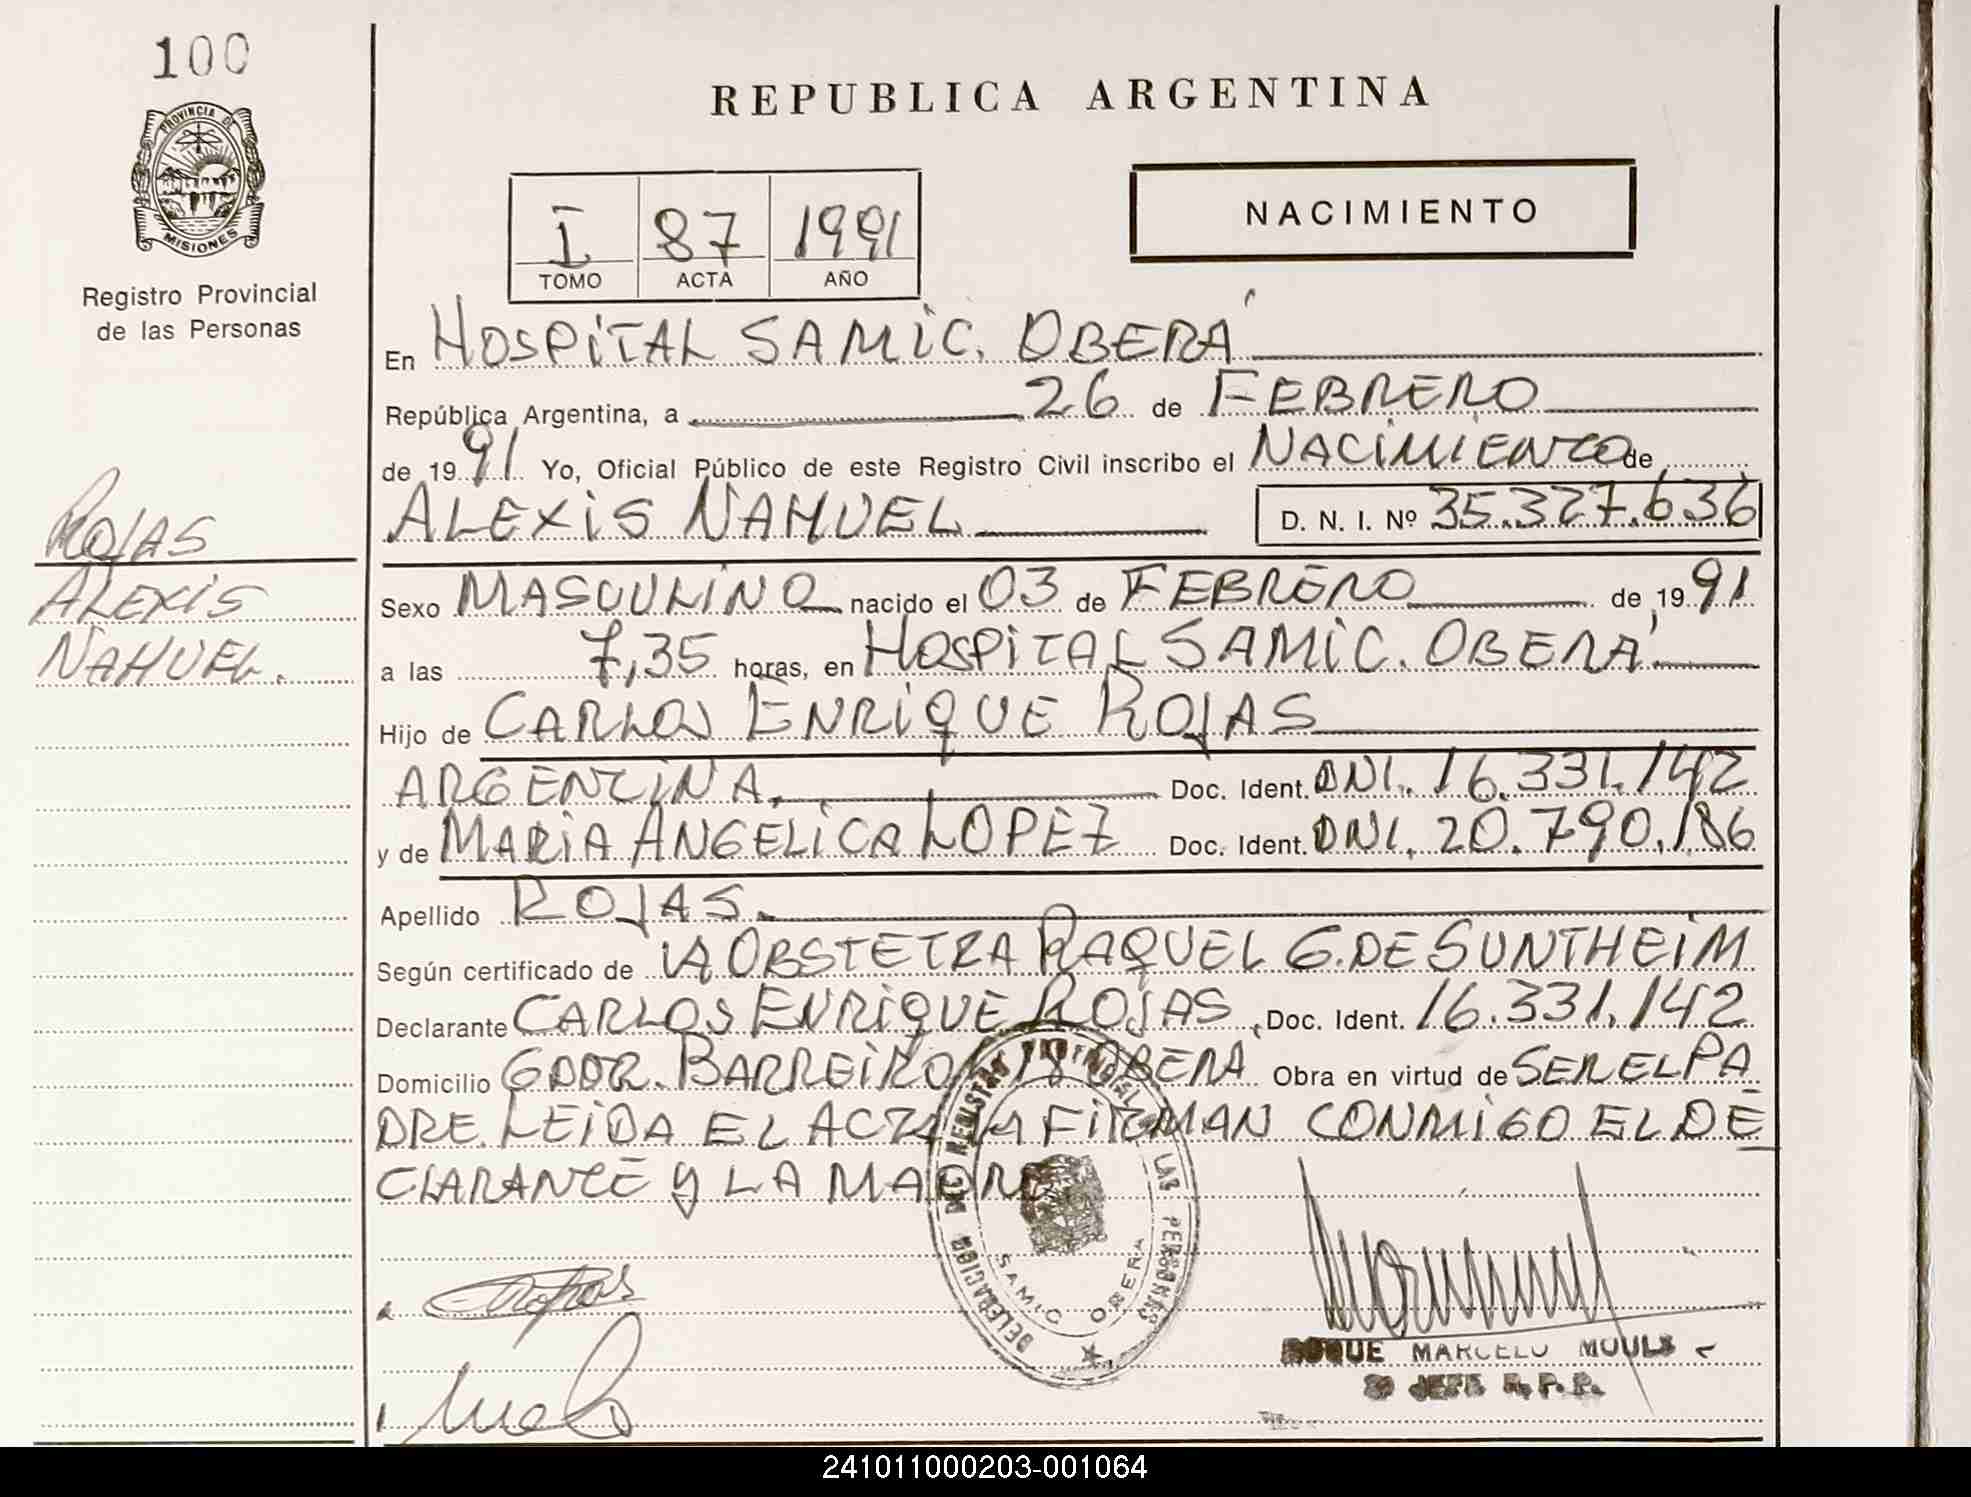 100
PROVINCIA DE
MISIONES
Registro Provincial
de las Personas
ROJAS
ALEXIS
NAHUEL.
REPUBLICA ARGENTINA
I 87 1991
TOMO ACTA AÑO
NACIMIENTO
En HOSPITAL SAMIC. OBERÁ
República Argentina, a 26 de FEBRERO
de 1991 Yo, Oficial Público de este Registro Civil inscribo el NACIMIENTO de
ALEXIS NAHUEL D. N. I. Nº 35.327.636
Sexo MASCULINO nacido el 03 de FEBRERO de 1991
a las 7,35 horas, en HOSPITAL SAMIC. OBERÁ
Hijo de CARLOS ENRIQUE ROJAS
ARGENTINA. Doc. Ident. DNI. 16.331.142
y de MARIA ANGELICA LOPEZ Doc. Ident. DNI. 20.790.186
Apellido ROJAS.
Según certificado de LA OBSTETRA RAQUEL G. DE SUNTHEIM
Declarante CARLOS ENRIQUE ROJAS, Doc. Ident. 16.331.142
Domicilio GDOR. BARREIRO OBERÁ Obra en virtud de SER EL PA
DRE. LEIDA EL ACTA LA FIRMAN CONMIGO EL DE
CLARANTE Y LA MADRE
DELEGACION DEL REGISTRO PROVINCIAL DE LAS PERSONAS
SAMIC OBERA
ROQUE MARCELO
JEFE R. P. P.
241011000203-001064